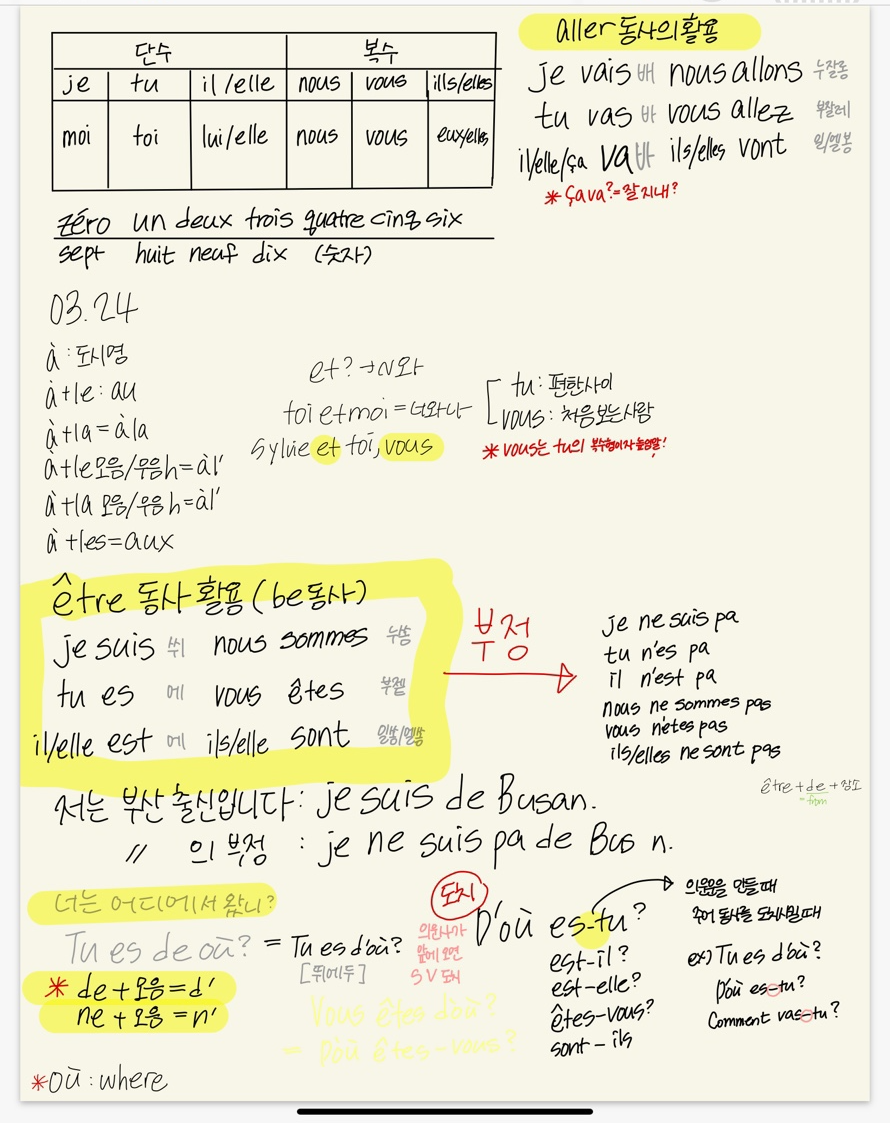 단수 복수
je tu il/elle nous vous ills/elles
moi toi lui/elle nous vous eux/elles
zéro un deux trois quatre cinq six
sept huit neuf dix (숫자)
aller 동사의 활용
je vais 배 nous allons 누잘롱
tu vas 바 vous allez 부잘레
il/elle/ça va 바 ils/elles vont 일/엘봉
* ça va? = 잘 지내?
03.24
à : 도시명
à+le : au
à+la = à la
à+le 모음/무음 h = à l'
à+la 모음/무음 h = à l'
à +les = aux
et? → N와
toi et moi = 너와 나
Sylvie et toi, vous
tu : 편한 사이
vous : 처음 보는 사람
* vous는 tu의 복수형이자 높임말!
être 동사 활용 (be동사)
je suis 쒸 nous sommes 누쏨
tu es 에 vous êtes 부젵
il/elle est 에 ils/elles sont 일쏭/엘쏭
부정
je ne suis pa
tu n'es pa
il n'est pa
nous ne sommes pas
vous n'êtes pas
ils/elles ne sont pas
être + de + 장소
= from
저는 부산 출신입니다 : je suis de Busan.
〃 의 부정 : je ne suis pa de Bus n.
너는 어디에서 왔니?
Tu es de où? = Tu es d'où?
[뛰에두]
* de + 모음 = d'
ne + 모음 = n'
도치
의문사가
앞에 오면
S V 도치
D'où es-tu?
est-il?
est-elle?
êtes-vous?
sont-ils
의문문을 만들 때
주어 동사를 도치시킬 때
ex) Tu es d'où?
D'où es-tu?
Comment vas-tu?
Vous êtes d'où?
- D'où êtes-vous?
* où : where